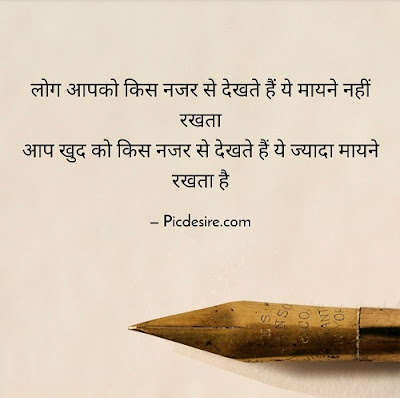 लोग आपको किस नजर से देखते हैं ये मायने नहीं
रखता
आप खुद को किस नजर से देखते हैं ये ज्यादा मायने
रखता है
– Picdesire.com
& CO.